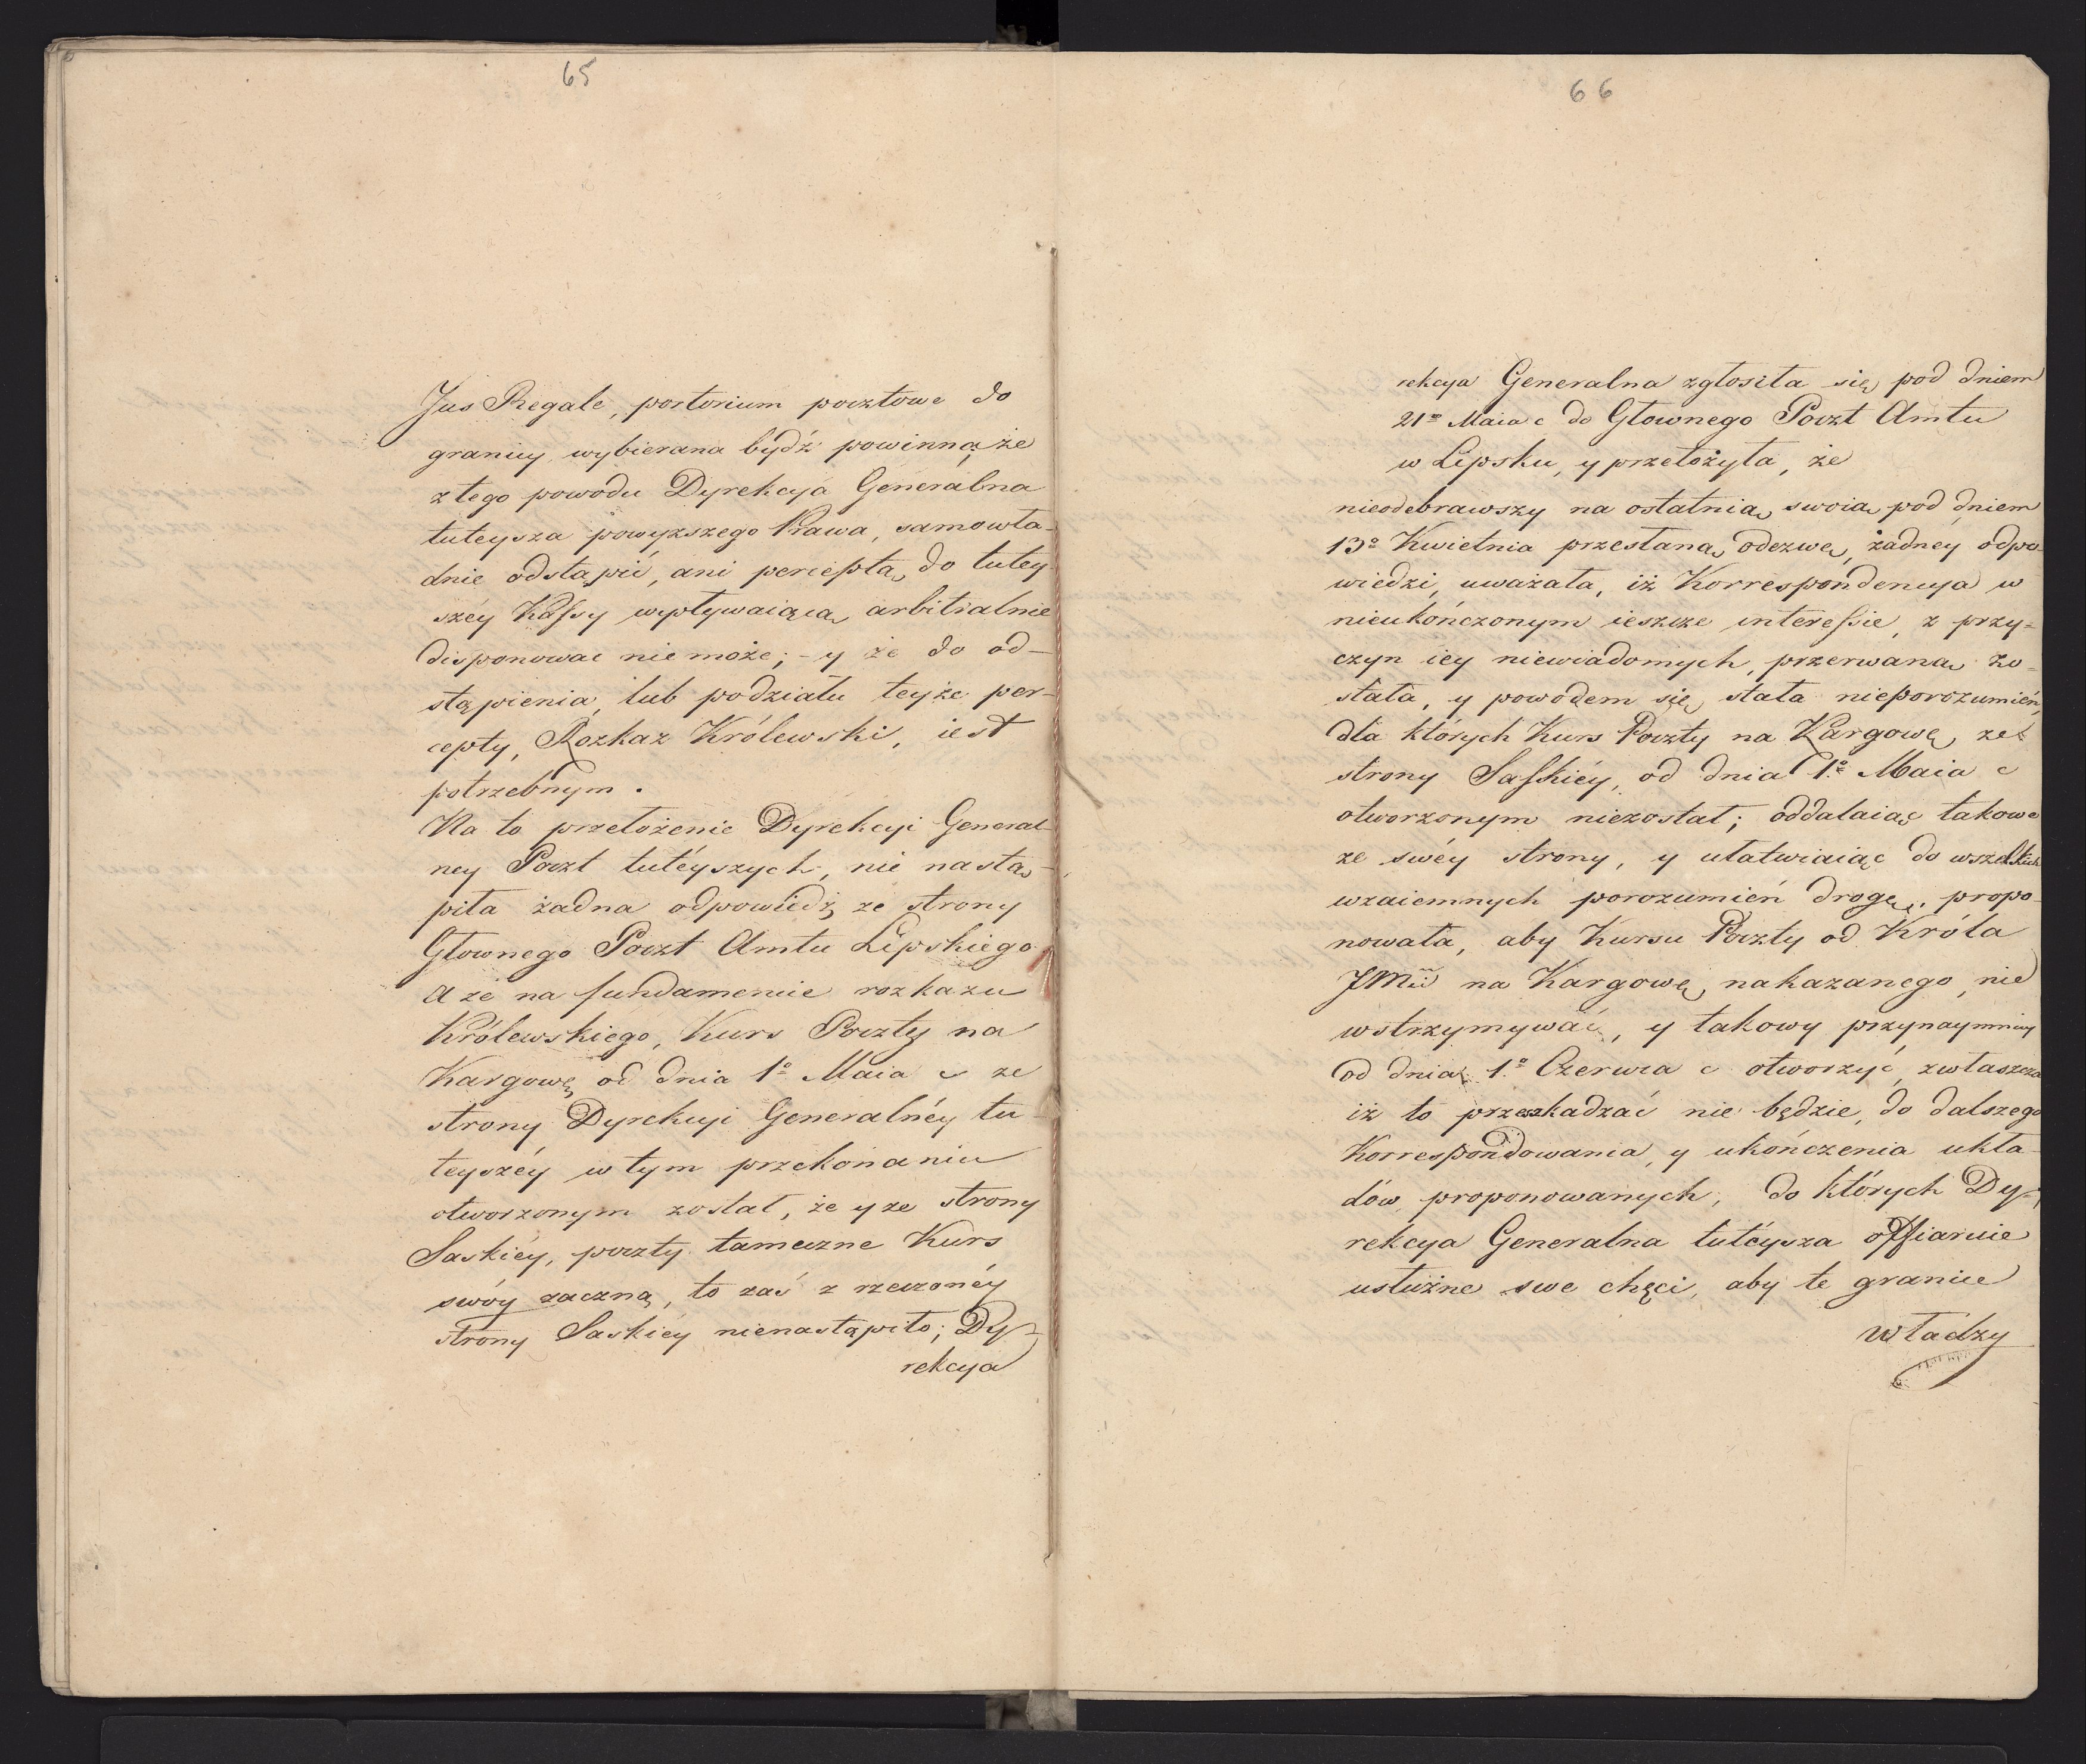 65
Jus Regale, portorium pocztowe do
granicy wybierana bydź powinną, że
z tego powodu Dyrekcya Generalna
tuteysza powyższego Prawa, samowła-
dnie odstąpić, ani perceptą do tutey
széy Kassy wpływaiącą arbitralnie
disponować nie może; - y że do od-
stąpienia, lub podziału teyże per-
cepty, Rozkaz Królewski, iest
potrzebnym.
Na to przełożenie Dyrekcyi General
ney Poczt tutéyszych, nie nastą-
piła żadna odpowiedź ze strony
Głownego Poczt Amtu Lipskiego
A że na fundamencie rozkazu
Królewskiego, Kurs Poczty na
Kargowę od dnia 1º Maia c ze
strony Dyrekcyi Generalnéy tu
teyszéy w tym przekonaniu
otworzonym został, że y ze strony
Saskiéy, poczty tameczne Kurs
swóy zaczną, to zaś z rzeczonéy
strony Saskiéy nienastąpiło; Dy-
rekcya
66
rekcya Generalna zgłosiła się pod dniem
21º Maia c do Głownego Poczt Amtu
w Lipsku, y przełożyła, że
nieodebrawszy na ostatnią swoią pod dniem
13º Kwietnia przesłaną odezwę, żadnéy odpo-
wiedzi, uważała, iż Korrespondencya w
nieukończonym ieszcze interessie, z przy-
czyn iey niewiadomych, przerwaną zo-
stała, y powodem się stała nieporozumień,
dla których Kurs Poczty na Kargowę ze
strony Saskiéy, od dnia 1º Maia c
otworzonym niezostał; oddalaiąc takowe
ze swéy strony, y ułatwiaiąc do wszelkich
wzaiemnych porozumień drogę, propo-
nowała, aby Kursu Poczty od Króla
JMci na Kargowę nakazanego, nie
wstrzymywać, y takowy przynaymniey
od dnia 1º Czerwca c otworzyć, zwłaszcza
iż to przeszkadzać nie będzie, do dalszego
Korrespondowania, y ukończenia ukła-
dów proponowanych, do których Dy-
rekcya Generalna tutéysza offiaruie
usłużne swe chęci, aby te granice
władzy